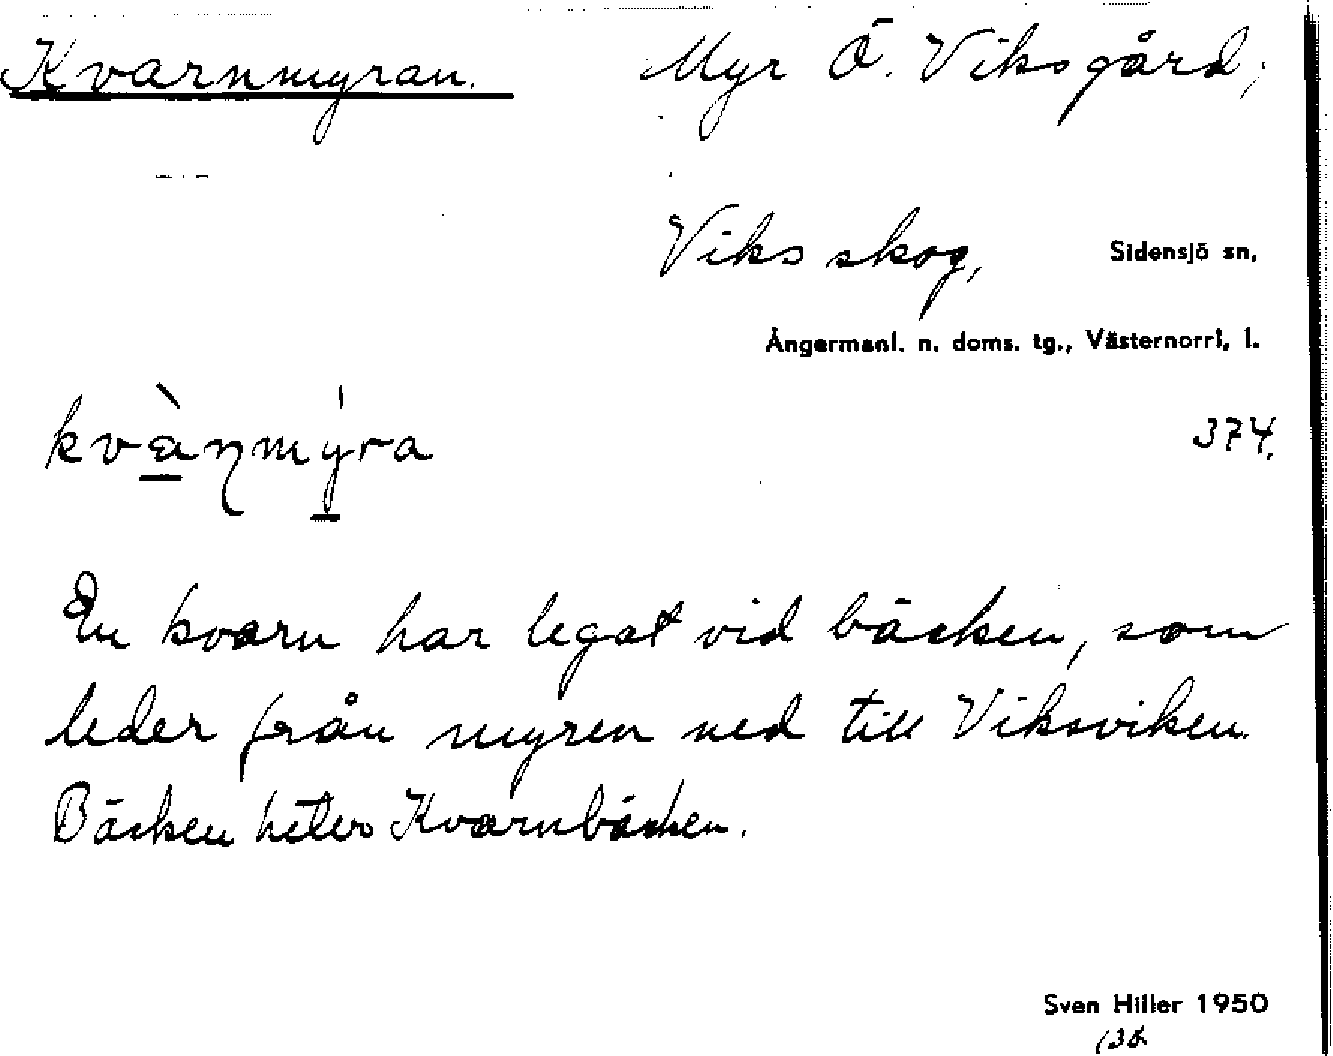 Kvarnmyran. Myr Ö. Viksgård,
Viks skog, Sidensjö sn,
Ångermanl. n. doms. tg., Västernorrl. l.
kvànmýra
374.
En kvarn har legat vid bäcken, som
leder från myren ned till Viksviken.
Bäcken heter Kvarnbäcken.
Sven Hiller 1950